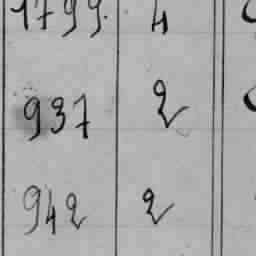 1799. 4
937 2
942 2